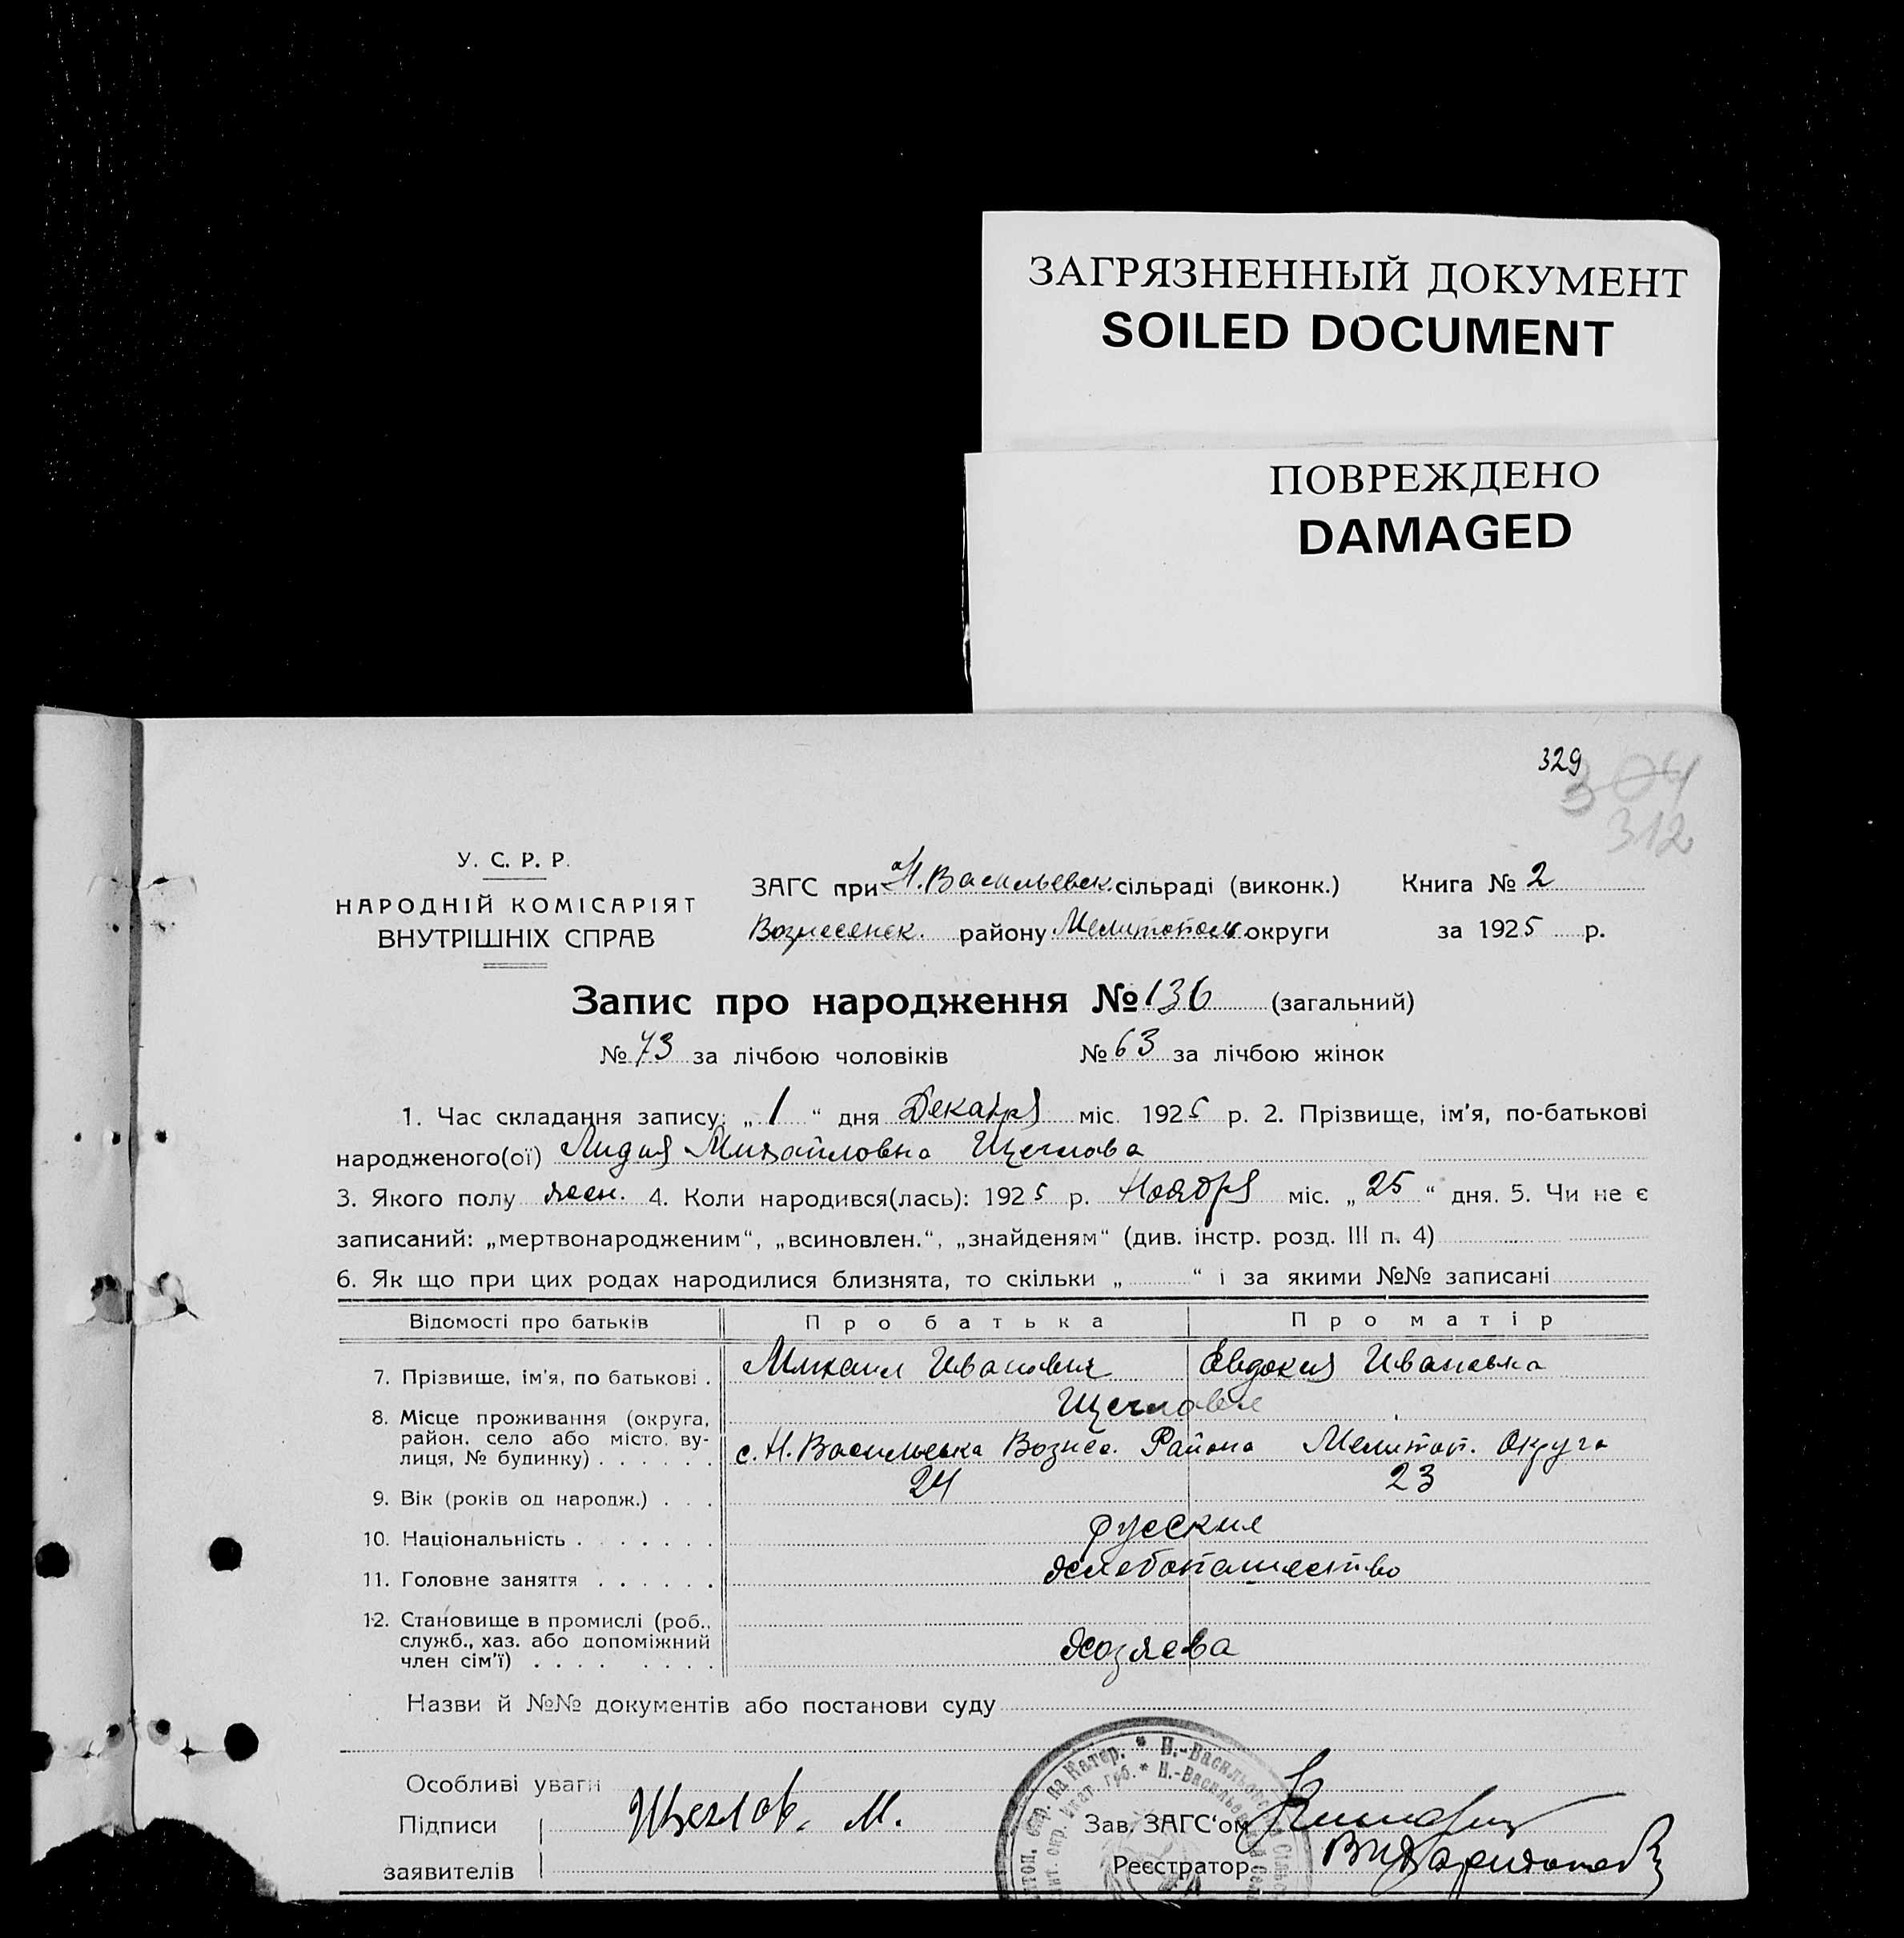 ЗАГРЯЗНЕННЫЙ ДОКУМЕНТ
SOILED DOCUMENT
ПОВРЕЖДЕНО
DAMAGED
329
304
312
У. С. Р. Р.
НАРОДНІЙ КОМІСАРІЯТ
ВНУТРІШНІХ СПРАВ
ЗАГС при Н. Васильевск. сільраді (виконк.) Книга № 2
Вознесенск. району Мелитополь округи за 1925 р.
Запис про народження № 136 (загальний)
№ 73 за лічбою чоловіків № 63 за лічбою жінок
1. Час складання запису: „ 1 “ дня Декабря міс. 1925 р. 2. Прізвище, ім'я, по-батькові
народженого(ої) Лидия Михайловна Щеглова
3. Якого полу жен. 4. Коли народився(лась): 1925 р. Ноября міс. „ 25 “ дня. 5. Чи не є
записаний: „мертвонародженим“, „всиновлен.“, „знайденям“ (див. інстр. розд. III п. 4)
6. Як що при цих родах народилися близнята, то скільки „ “ і за якими №№ записані
Відомості про батьків Про батька Про матір
7. Прізвище, ім'я, по батькові . Михаил Иванович Евдокия Ивановна
Щегловы
8. Місце проживання (округа,
район, село або місто, ву-
лиця, № будинку) . . . . . . с. Н. Васильевка Вознес. Района Мелитоп. Округа
9. Вік (років од народж.) . . . 24 23
10. Національність . . . . . . . русские
11. Головне заняття . . . . . . хлебопашество
12. Становище в промислі (роб.,
служб., хаз. або допоміжний
член сім'ї) . . . . . . . . хозяева
Назви й №№ документів або постанови суду
Особливі уваги
Підписи
заявителів
Щеглов. М.
Зав. ЗАГС'ом
Реєстратор